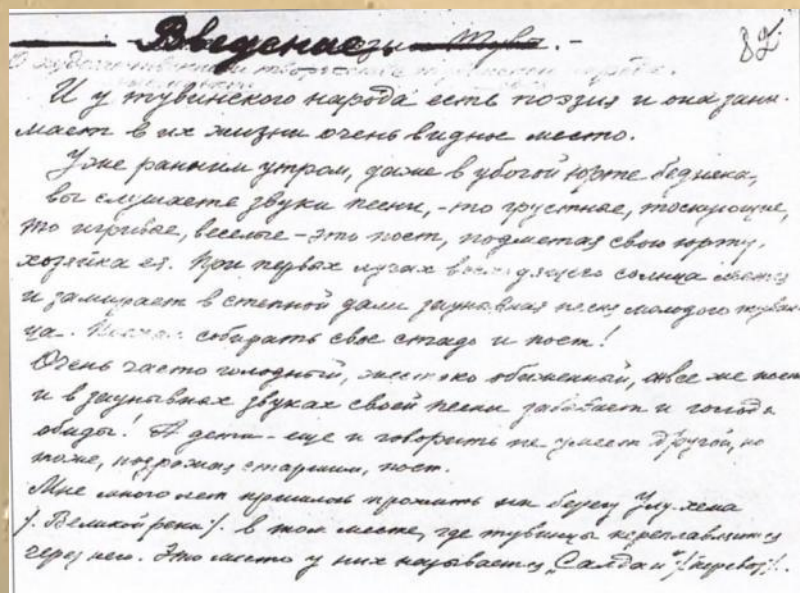 Введение
82.
И у тувинского народа есть поэзия и она зани-
мает в их жизни очень видное место.
Уже ранним утром, даже в убогой юрте бедняка,
вы слушаете звуки песни, - то грустные, тоскующие,
то игривые, веселые - это поет, подметая свою юрту,
хозяйка ея. При первых лучах восходящего солнца
и замирает в степной дали заунывная песня молодого тувин-
ца. собирать свое стадо и поет!
Очень часто голодный, жестоко обиженный, он все же поет
и в заунывных звуках своей песни забывает и голод и
обиды! А дети - еще и говорить не умеет другой, но
тоже, подражая старшим, поет.
Мне много лет пришлось прожить на берегу Улу-хема
/. Великой реки /. в том месте, где тувинцы переправляются
через него. Это место у них называется „Салдам" /. перевоз /.